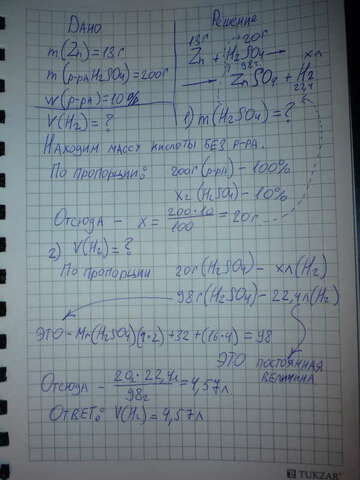 Дано
Решение
m(Zn)=13г
m(р-раH₂SO₄)=200г
w(р-ра)=10%
V(H₂)=?
13г 20г xл
Zn + H₂SO₄ →
98г
→ ZnSO₄ + H₂
22,4
1) m(H₂SO₄)=?
Находим массу кислоты без р-ра.
По пропорции: 200г(р-ра) – 100%
xг(H₂SO₄) – 10%
Отсюда – x = 200·10/100 = 20г
2) V(H₂)=?
По пропорции 20г(H₂SO₄) – xл(H₂)
98г(H₂SO₄) – 22,4л(H₂)
Это – Mr(H₂SO₄)(1·2)+32+(16·4)=98
Это постоянная
величина
Отсюда – 20г·22,4л/98г = 4,57л
Ответ: V(H₂)=4,57л
TUKZAR